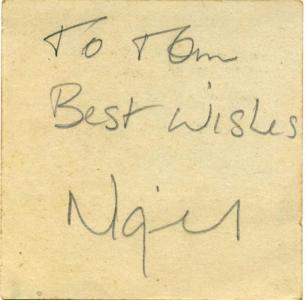 To Tom
Best Wishes
Nigel